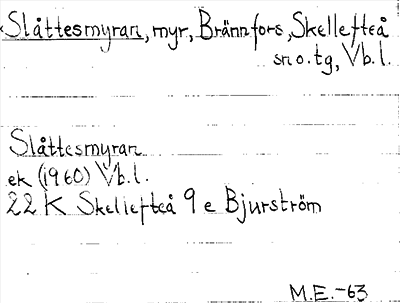 Slåttesmyran, myr, Brännfors, Skellefteå
sn o. tg, Vb. l.
Slåttesmyran
ek (1960) Vb. l.
22 K Skellefteå 9 e Bjurström
M.E. -63